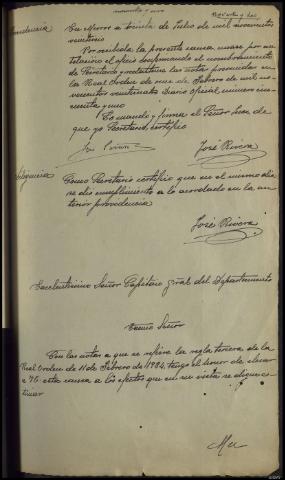 En Marin a treinta de Julio de mil novecientos
veintiseis
Por recibida la presente causa, unase por su
el oficio confirmando el nombramiento
de Secretario y redactense las notas prevenidas en
la Real Orden de once de Febrero de mil no-
vecientos veintiseis Diario Oficial numero cin-
cuenta y uno
Lo mando y firma el Señor Juez de
que yo Secretario certifico
José Rivera
Diligencia
Como Secretario certifico que en el mismo dia
se dio cumplimiento a lo acordado en la an-
terior providencia
José Rivera
Excelentisimo Señor Capitan Gral del Departamento
Excmo Señor
Con las notas a que se refiere la regla tercera de la
Real Orden de 11 de Febrero de tengo el honor de elevar
a VE esta causa a los efectos que en su vista se digne es-
timar